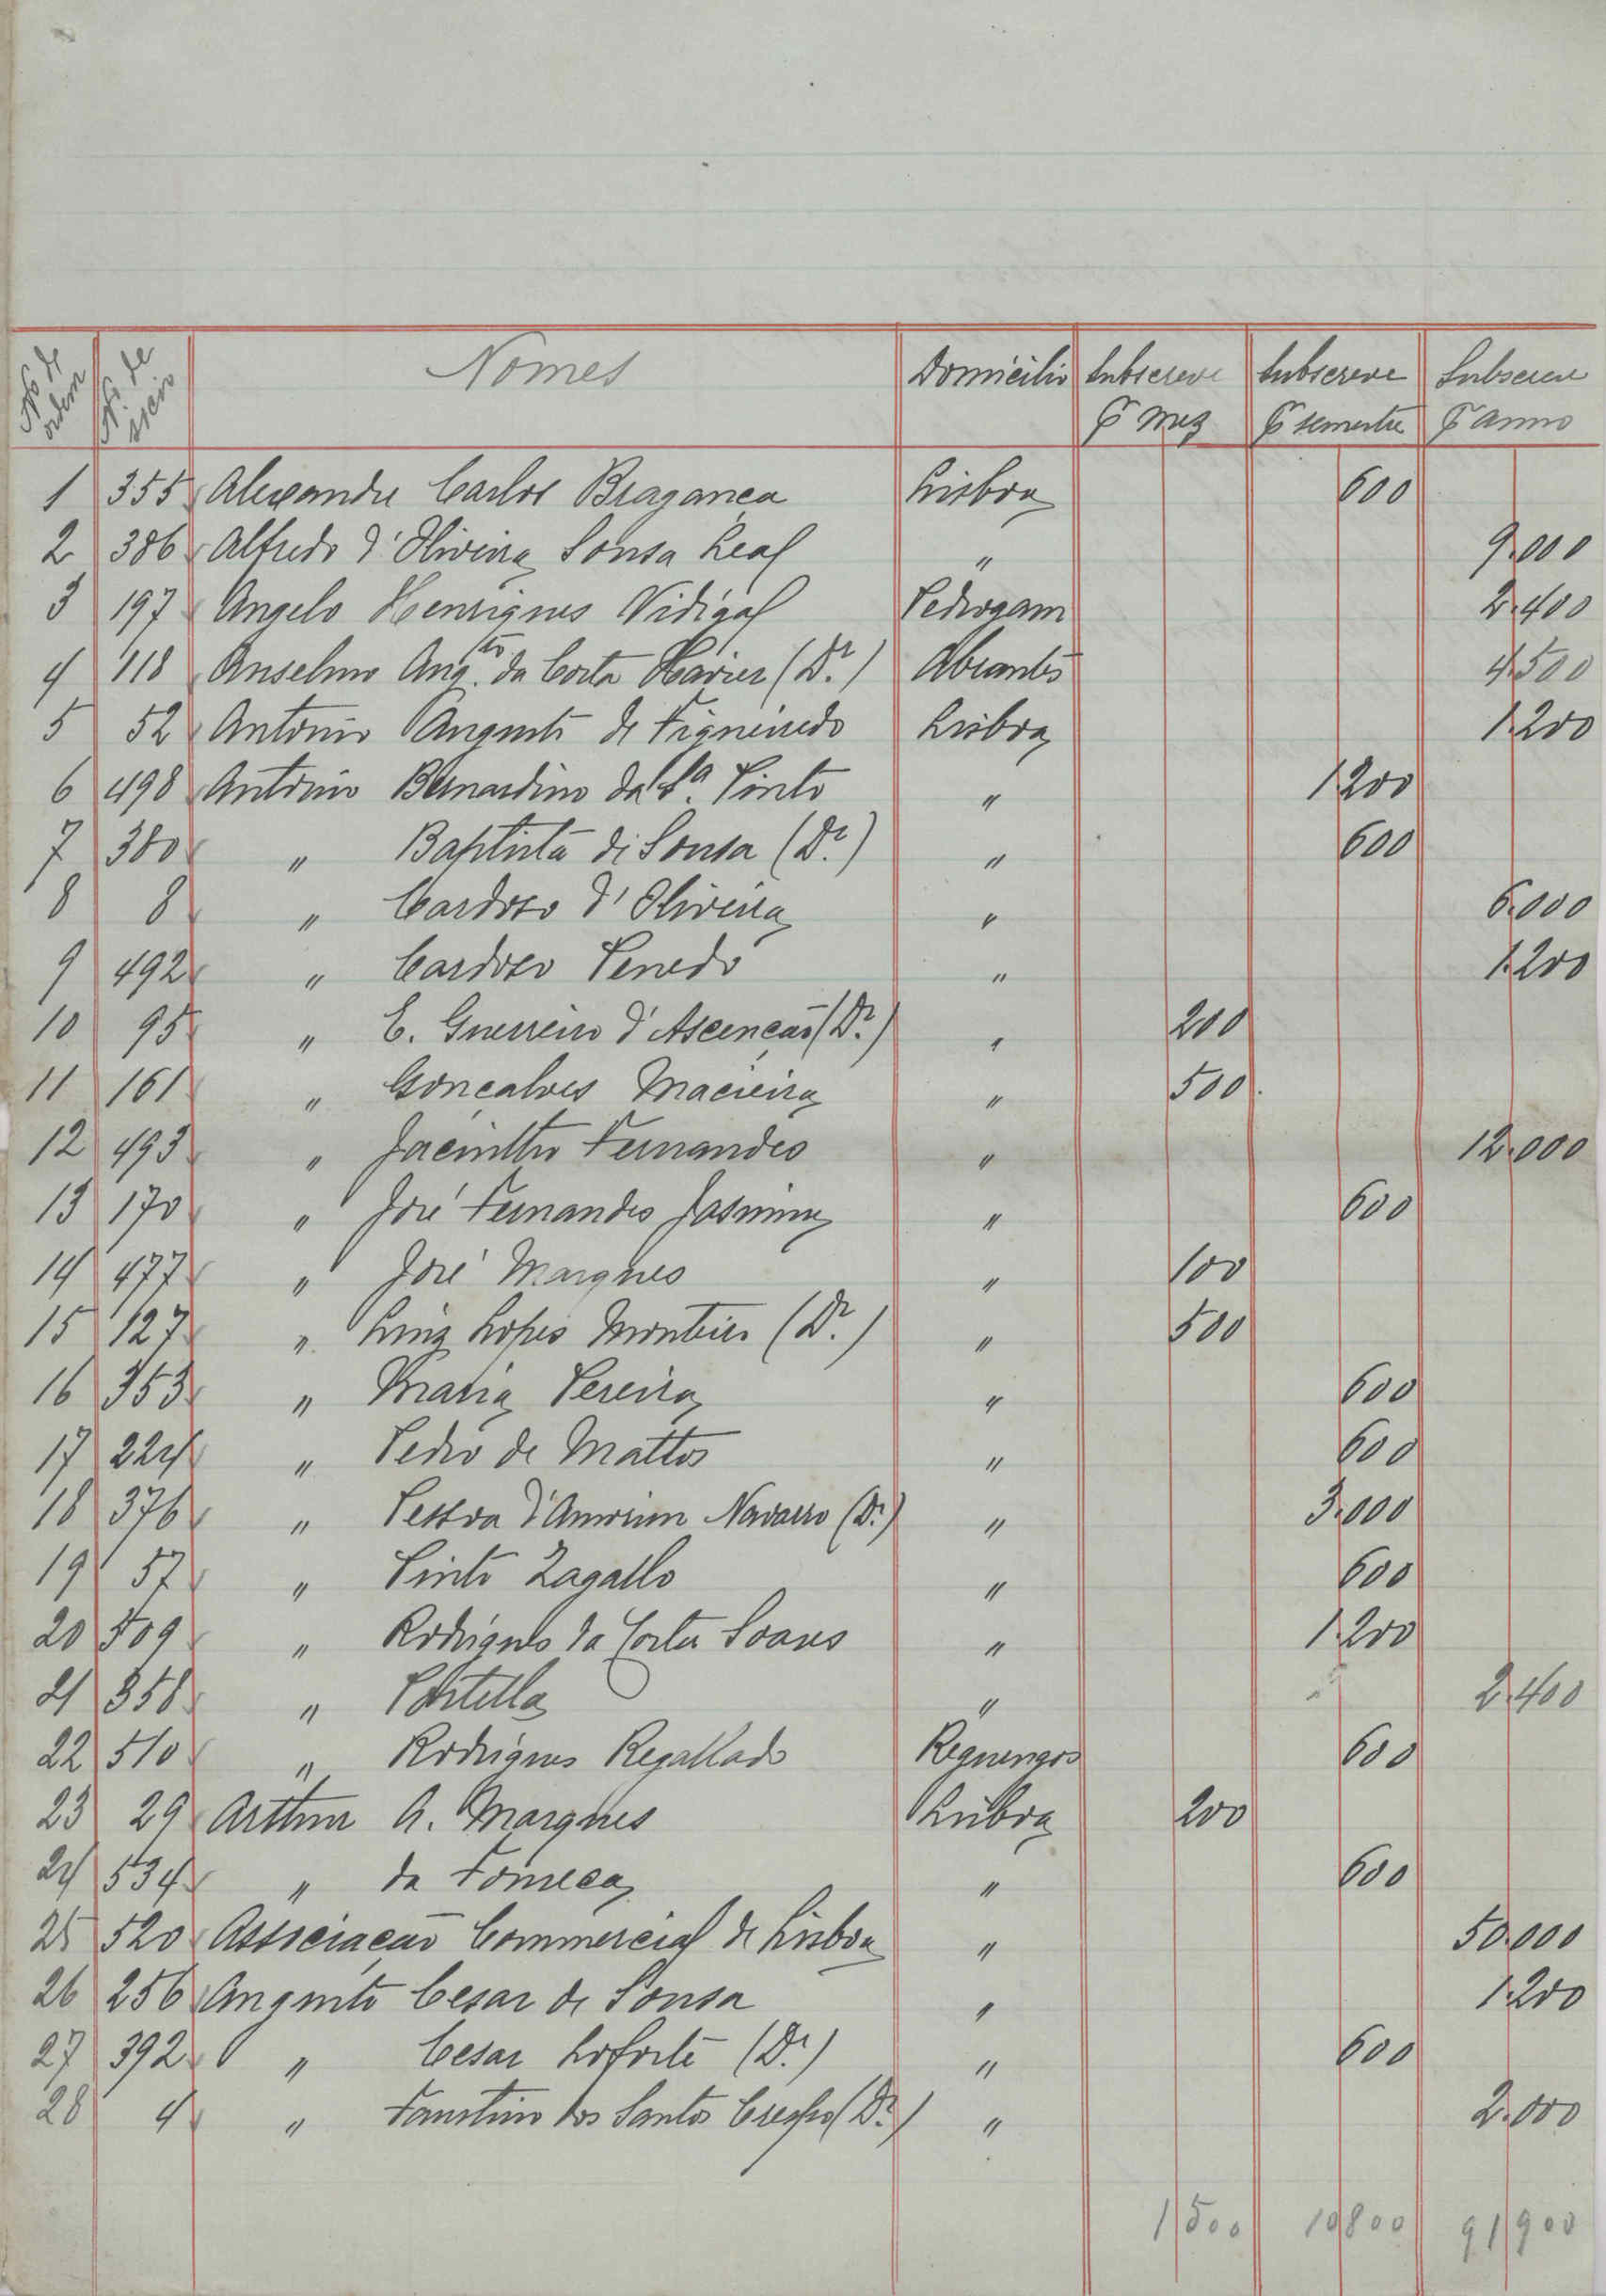 Nº de ordem Nº de socio Nomes Domicilio Subscreve P mez Subscreve P semestre Subscreve P anno
1 355 Alexandre Carlos Bragança Lisboa 600
2 386 Alfredo d'Oliveira Sousa Leal " 9.000
3 197 Angelo Henriques Vidigal Pedrogam 2.400
4 118 Anselmo Augto. da Costa Xavier (Dr.) Abrantes 4.500
5 52 Antonio Augusto de Figueiredo Lisboa 1.200
6 498 Antonio Bernardino da Sa. Pinto " 1.200
7 380 " Baptista de Sousa (Dr.) " 600
8 8 " Cardoso d'Oliveira " 6.000
9 492 " Cardoso Penedo " 1.200
10 95 " E. Guerreiro d'Ascenção (Dr.) " 200
11 161 " Gonçalves Macieira " 500
12 493 " Jacintho Fernandes " 12.000
13 170 " José Fernandes Jasmim " 600
14 477 " José Marques " 100
15 127 " Luiz Lopes Monteiro (Dr.) " 500
16 353 " Maria Pereira " 600
17 224 " Pedro de Mattos " 600
18 376 " Pessoa d'Amorim Navarro (Dr.) " 3.000
19 57 " Pinto Zagallo " 600
20 509 " Rodrigues da Costa Soares " 1.200
21 358 " Portella " 2.400
22 510 " Rodrigues Regallado Reguengos 600
23 29 Arthur A. Marques Lisboa 200
24 534 " da Fonseca " 600
25 520 Associação Commercial de Lisboa " 50.000
26 256 Augusto Cesar de Sousa " 1.200
27 392 " Cesar Loforte (Dr.) " 600
28 4 " Faustino dos Santos Crespo (Dr.) " 2.000
1500 10800 91900